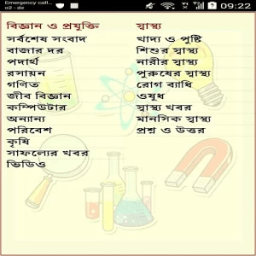 Emergency call...
o2 - de
09:22
বিজ্ঞান ও প্রযুক্তি
সর্বশেষ সংবাদ
বাজার দর
পদার্থ
রসায়ন
গণিত
জীব বিজ্ঞান
কম্পিউটার
অন্যান্য
পরিবেশ
কৃষি
সাফল্যের খবর
ভিডিও
স্বাস্থ্য
খাদ্য ও পুষ্টি
শিশুর স্বাস্থ্য
নারীর স্বাস্থ্য
পুরুষের স্বাস্থ্য
রোগ ব্যাধি
ওষুধ
স্বাস্থ্য খবর
মানসিক স্বাস্থ্য
প্রশ্ন ও উত্তর